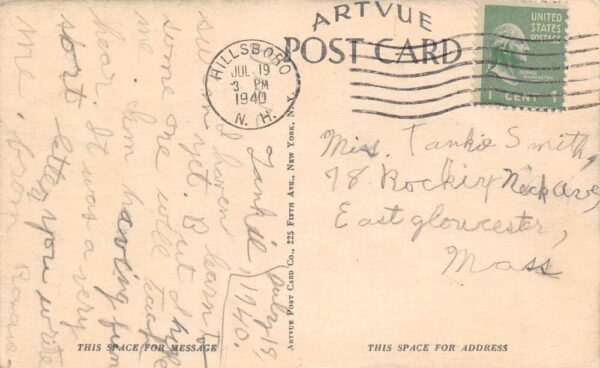 ARTVUE
POST CARD
HILLSBORO
JUL 19
3 PM
1940
N. H.
UNITED
STATES
POSTAGE
GEORGE WASHINGTON
1 CENT 1
July 19,
1940.
Tankie,
I haven learn to
swim yet. But I hope
some one will teach
me. I em having fun
hear. It was a very
sort letter you write
me, from
ARTVUE POST CARD CO., 225 FIFTH AVE., NEW YORK, N. Y.
Miss. Tankie Smith,
78 Rocky Neck Ave,
East gloucester,
Mass
THIS SPACE FOR MESSAGE
THIS SPACE FOR ADDRESS